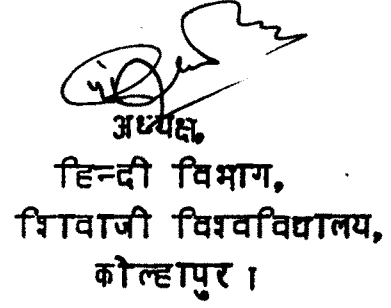 अध्यक्ष,
हिन्दी विभाग,
शिवाजी विश्वविद्यालय,
कोल्हापुर ।